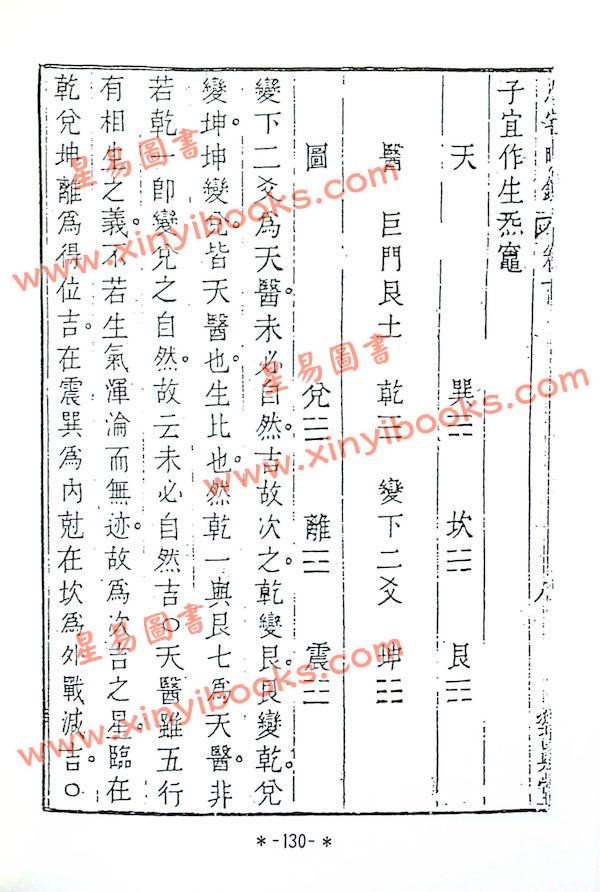 子宜作生炁竈
天 巽☴ 坎☵ 艮☶
醫 巨門艮土 乾☰ 變下二爻 坤☷
圖 兌☱ 離☲ 震☳
變下二爻為天醫。未必自然。吉故次之。乾變艮。艮變乾。兌
變坤。坤變兌。皆天醫也。生比也。然乾一與艮七為天醫。非
若乾一卽變兌之自然。故云未必自然吉○天醫雖五行
有相生之義。不若生氣渾淪而無迹。故為次吉之星。臨在
乾兌坤離為得位吉。在震巽為內尅在坎為外戰減吉。○
*-130-*
星易圖書
www.xinyibooks.com
星易圖書
www.xinyibooks.com
星易圖書
www.xinyibooks.com